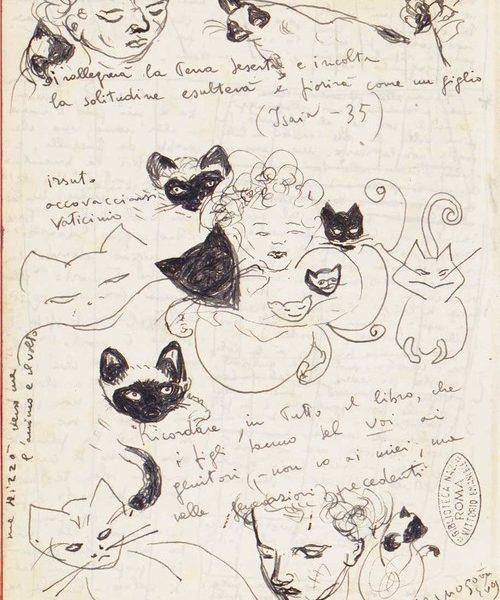 si rallegrerà la Terra deserta e incolta
la solitudine esulterà e fiorirà come un giglio
(Isaia - 35)
irsuto
accovacciarsi
Vaticinio
l'animo e il volto
"Ricordare, in Tutto il libro, che
i figli danno del Voi ai
genitori (non io ai miei, ma
nelle generazioni precedenti
BIBLIOTECA NAZ.
ROMA
VITTORIO EMANUELE